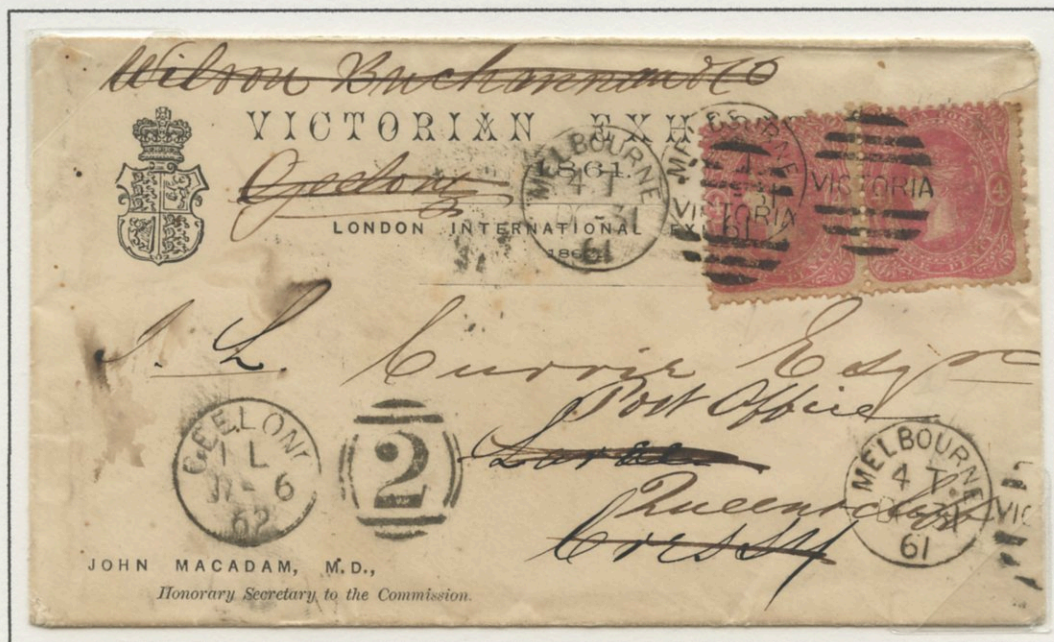 Wilson Buchannan & Co
VICTORIAN EXH
1861.
Geelong
LONDON INTERNATIONAL EX
186
MELBOURNE
4 T
DE-31
61
VICTORIA
VICTORIA
J. L. Currie Esqr
Post Office
Larra
Queenscliff
Cressy
GEELONG
1 L
JA- 6
62
2
MELBOURNE
4 T
DE-31
61
VIC
JOHN MACADAM, M.D.,
Honorary Secretary to the Commission.